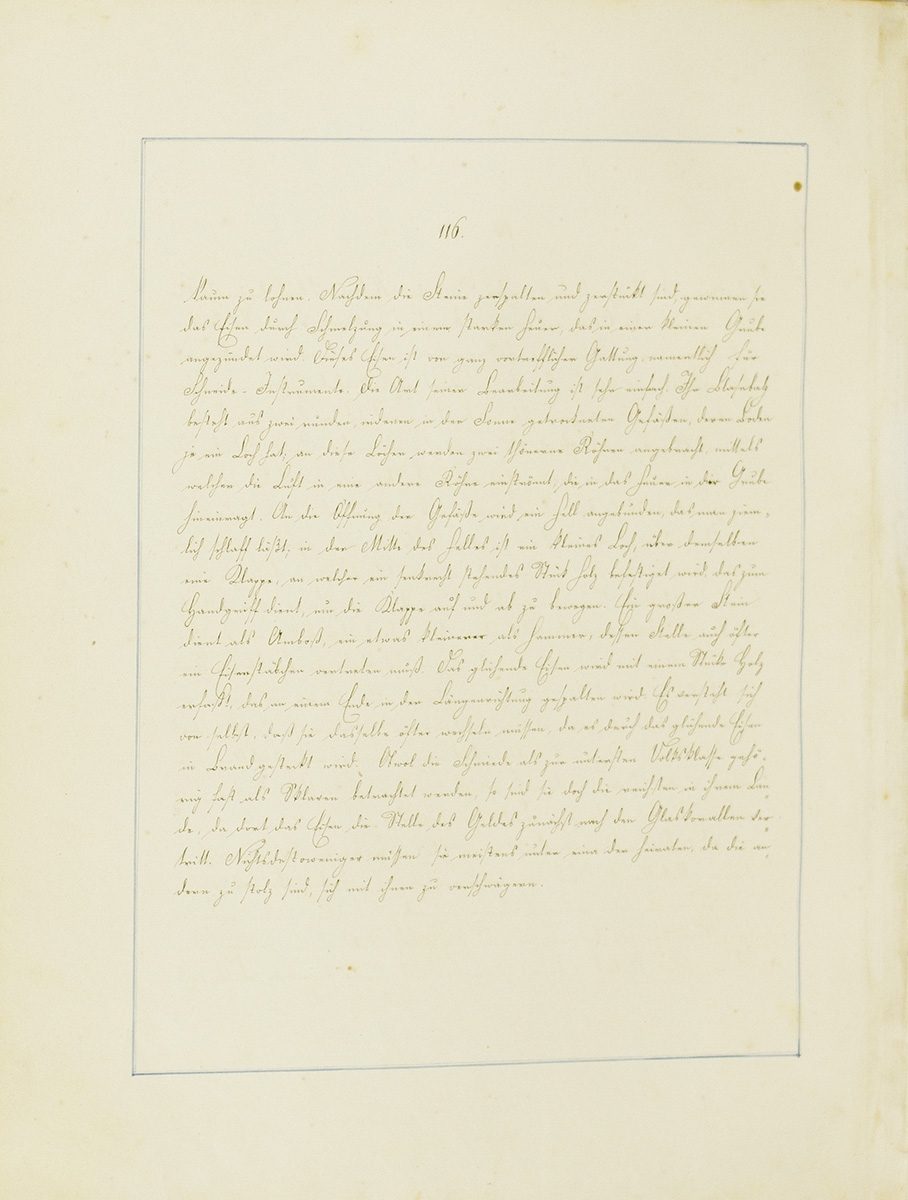 116.
kaum zu lohnen. Nachdem die Steine zerspalten und zerstückt sind, gewinnen sie
das Eisen durch Schmelzung in einem starken Feuer, das in einer kleinen Grube
angezündet wird. Dieses Eisen ist von ganz vortrefflicher Gattung, namentlich für
Schneide-Instrumente. Die Art seiner Bearbeitung ist sehr einfach. Ihr Blasebalg
besteht aus zwei runden, irdenen in der Sonne getrockneten Gefäßen, deren Boden
je ein Loch hat; an diese Löcher werden zwei thönerne Röhren angebracht, mittels
welcher die Luft in eine andere Röhre einströmt, die in das Feuer in der Grube
hineinragt. An die Öffnung der Gefäße wird ein Fell angebunden, das man ziem-
lich schlaff läßt; in der Mitte des Felles ist ein kleines Loch, über demselben
eine Klappe, an welcher ein senkrecht stehendes Stück Holz befestiget wird, das zum
Handgriff dient, um die Klappe auf und ab zu bewegen. Ein großer Stein
dient als Amboß, ein etwas kleinerer als Hammer, dessen Stelle auch öfter
ein Eisenstäbchen vertreten muß. Das glühende Eisen wird mit einem Stücke Holz
erfaßt, das an einem Ende in der Längenrichtung gespalten wird. Es versteht sich
von selbst, daß sie dasselbe öfter wechseln müssen, da es durch das glühende Eisen
in Brand gesteckt wird. Obwol die Schmiede als zur untersten Volksklasse gehö-
rig fast als Sklaven betrachtet werden, so sind sie doch die reichsten in ihrem Lan-
de, da dort das Eisen die Stelle des Geldes zunächst nach den Glaskorallen ver-
tritt. Nichtsdestoweniger müssen sie meistens unter einander heiraten, da die an-
dern zu stolz sind, sich mit ihnen zu verschwägern.